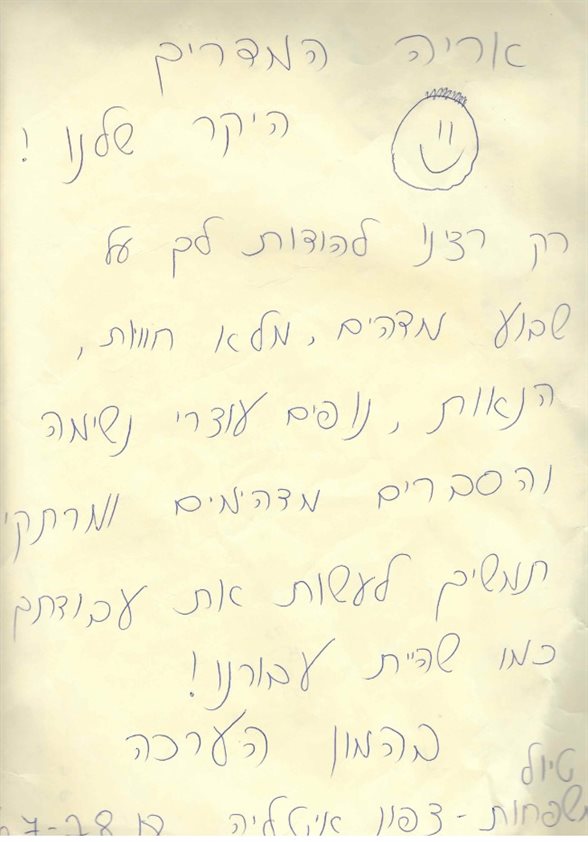 אריה המדריך
היקר שלנו !
רק רצינו להודות לך על
שבוע מדהים, מלא חוויות,
הנאות, נופים עוצרי נשימה
והסברים מדהימים ומרתקי
תמשיך לעשות את עבודתך
כמו שהיית עבורנו!
בהמון הערכה
טיול
משפחות - צפון איטליה